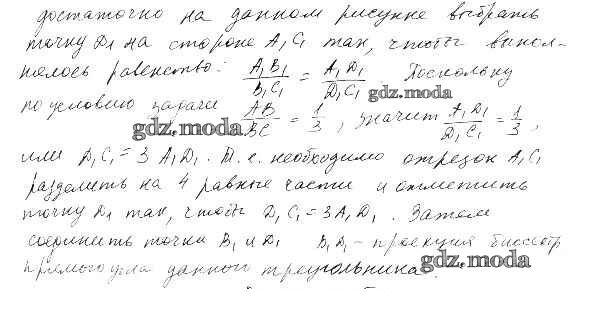 достаточно на данном рисунке выбрать
точку D₁ на стороне A₁C₁ так, чтобы выпол-
нялось равенство: A₁B₁/B₁C₁ = A₁D₁/D₁C₁. Поскольку
gdz.moda
по условию задачи AB/BC = 1/3, значит A₁D₁/D₁C₁ = 1/3,
gdz.moda
или D₁C₁ = 3A₁D₁. Т.е. необходимо отрезок A₁C₁
разделить на 4 равные части и отметить
точку D₁ так, чтобы D₁C₁ = 3A₁D₁. Затем
соединить точки B₁ и D₁ B₁D₁ - проекция биссектр
прямого угла данного треугольника.
gdz.moda